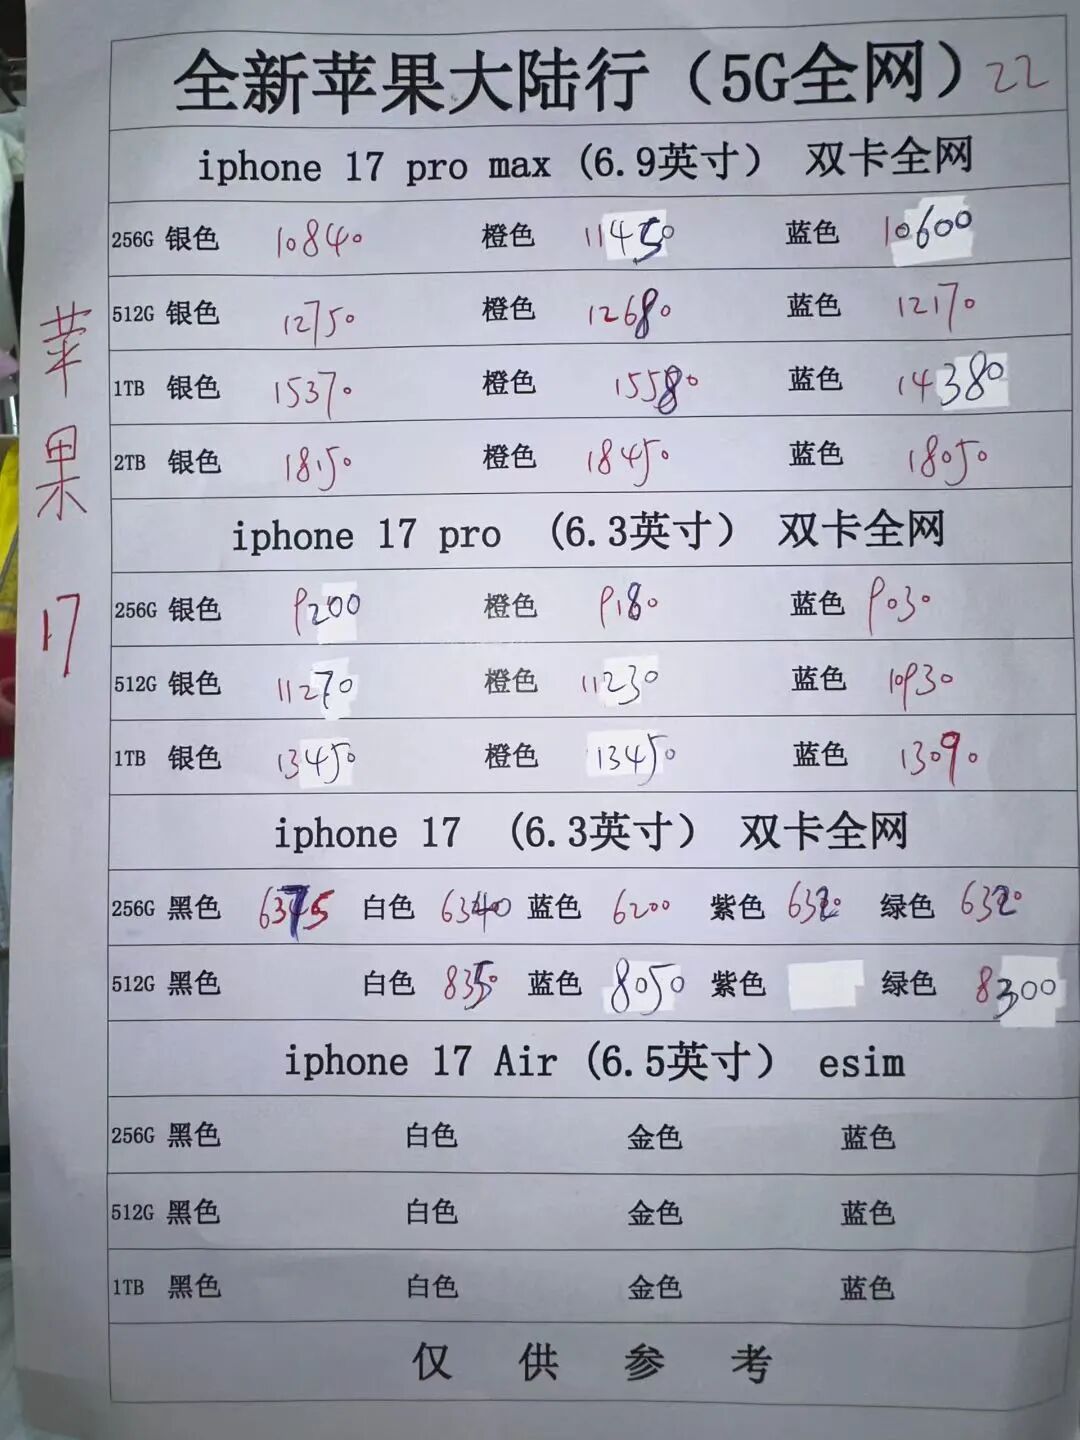 全新苹果大陆行（5G全网）22
iphone 17 pro max（6.9英寸） 双卡全网
256G 银色 10840 橙色 11450 蓝色 10600
512G 银色 12750 橙色 12680 蓝色 12170
1TB 银色 15370 橙色 15580 蓝色 14380
2TB 银色 18150 橙色 18450 蓝色 18050
iphone 17 pro （6.3英寸） 双卡全网
256G 银色 9200 橙色 9180 蓝色 9030
512G 银色 11270 橙色 11230 蓝色 10930
1TB 银色 13450 橙色 13450 蓝色 13090
iphone 17 （6.3英寸） 双卡全网
256G 黑色 6375 白色 6340 蓝色 6200 紫色 6320 绿色 6320
512G 黑色 白色 8350 蓝色 8050 紫色 绿色 8300
iphone 17 Air（6.5英寸） esim
256G 黑色 白色 金色 蓝色
512G 黑色 白色 金色 蓝色
1TB 黑色 白色 金色 蓝色
仅供参考
苹果17